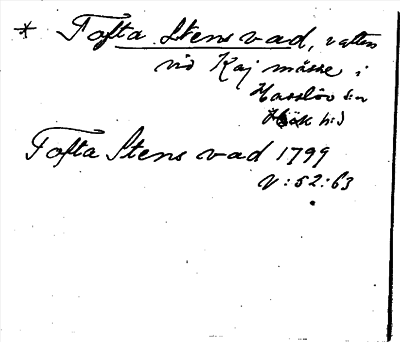 * Tofta Stens vad, vatten
vid Kaj mässe i
Hasslöv s:n
Hök h:d
Tofta Stens vad 1799
V:52:63